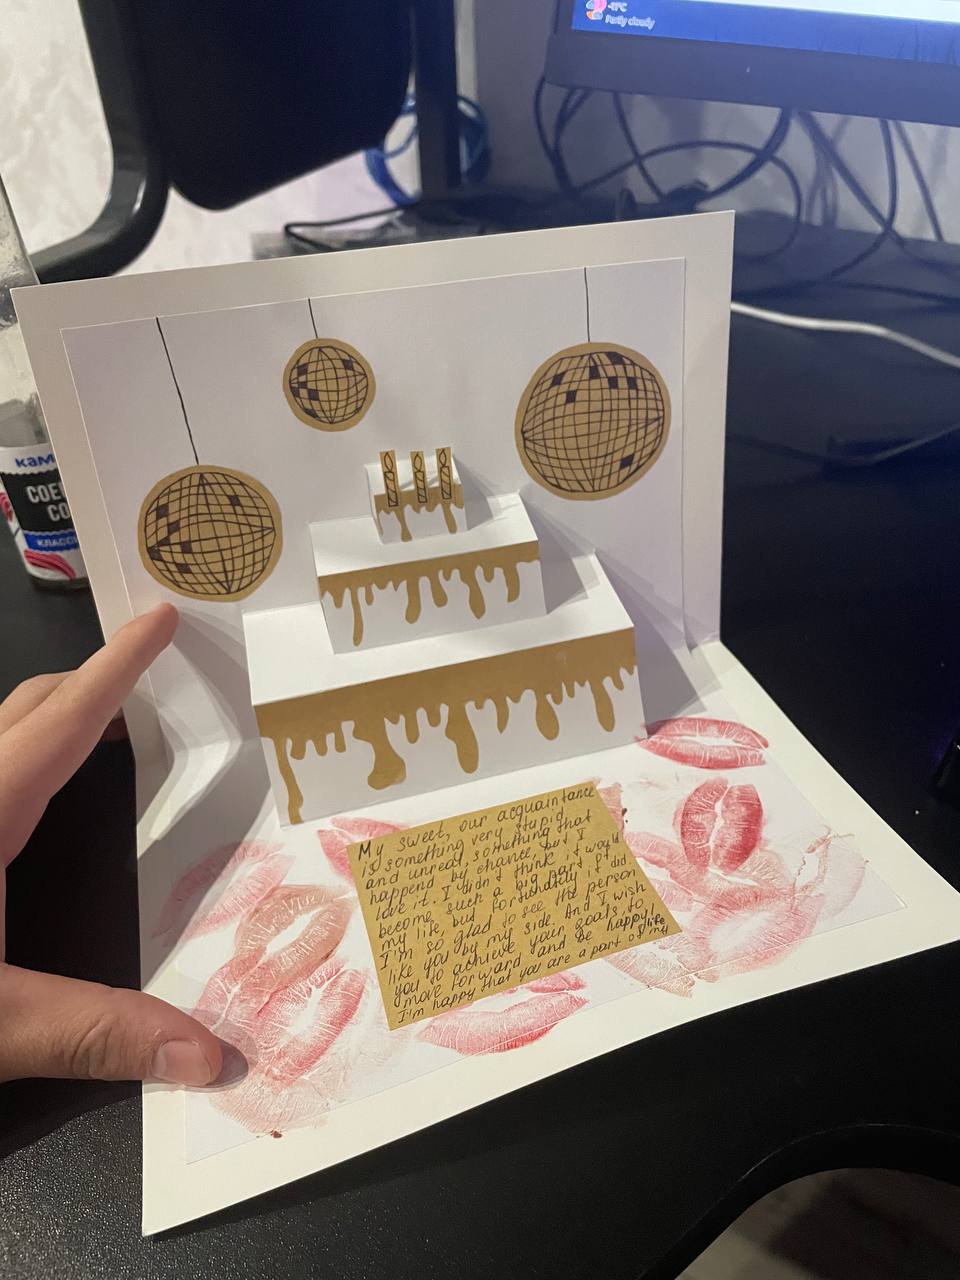 -11°C
Partly cloudy
My sweet, our acquaintance
is something very stupid
and unreal, something that
happend by chance, but I
love it. I didn't think it would
become such a big part of
my life, but fortunately it did
I'm so glad to see the person
like you by my side. And I wish
you to achieve your goals, to
move forward and be happy
I'm happy that you are a part of my
life
КЛАССИ